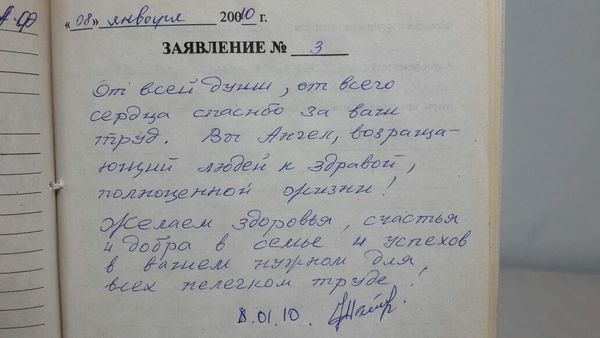 «08» января 20010 г.
ЗАЯВЛЕНИЕ № 3
От всей души, от всего
сердца спасибо за ваш
труд. Вы Ангел, возраща-
ющий людей к здравой,
полноценной жизни!
Желаем здоровья, счастья
и добра в семье и успехов
в вашем нужном для
всех нелегком труде!
8.01.10.